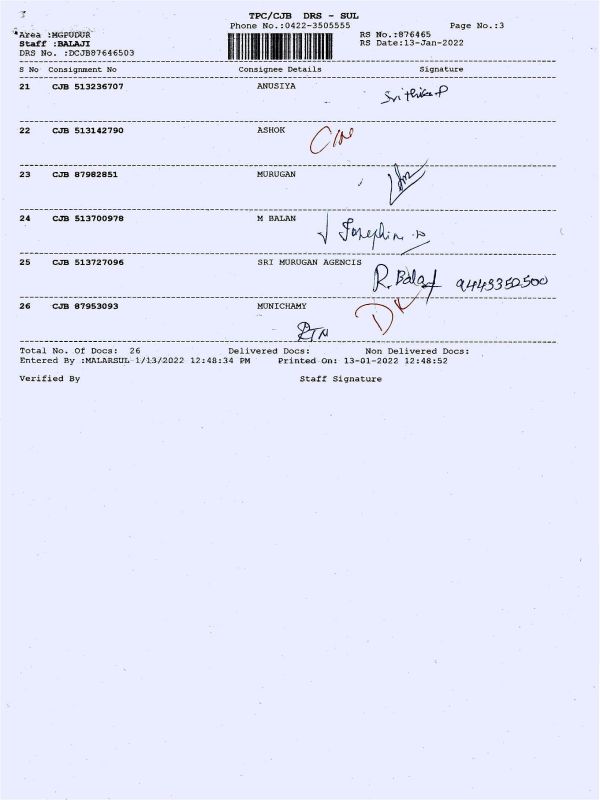 3
TPC/CJB DRS - SUL
Phone No.:0422-3505555
Page No.:3
Area :MGPUDUR
RS No.:876465
Staff :BALAJI
RS Date:13-Jan-2022
DRS No. :DCJB87646503
S No Consignment No Consignee Details Signature
21 CJB 513236707 ANUSIYA
Srithika P
22 CJB 513142790 ASHOK
23 CJB 87982851 MURUGAN
24 CJB 513700978 M BALAN
Josephin
25 CJB 513727096 SRI MURUGAN AGENCIS
R. Balaji 9443350500
26 CJB 87953093 MUNICHAMY
RTN
Total No. Of Docs: 26 Delivered Docs: Non Delivered Docs:
Entered By :MALARSUL 1/13/2022 12:48:34 PM Printed On: 13-01-2022 12:48:52
Verified By Staff Signature